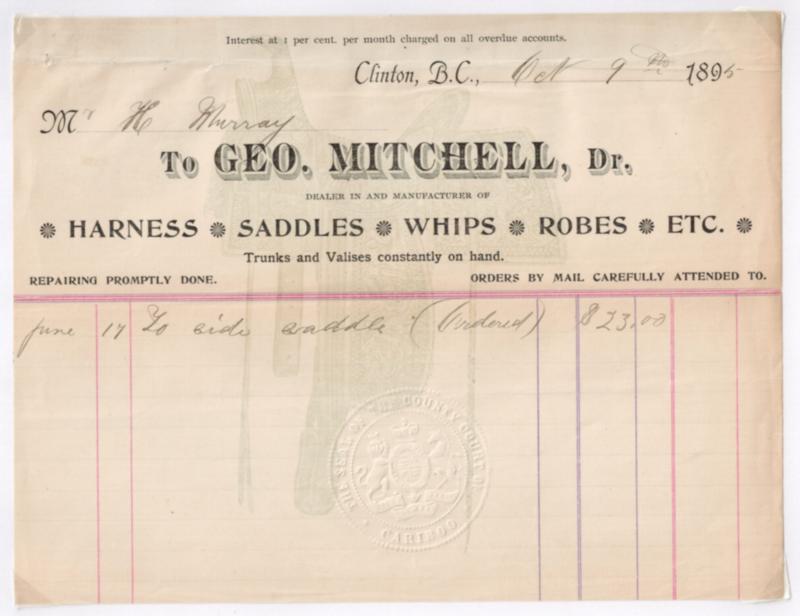 Interest at 1 per cent. per month charged on all overdue accounts.
Clinton, B.C., Oct 9th 1895
Mr H Murray
To GEO. MITCHELL, Dr.
DEALER IN AND MANUFACTURER OF
HARNESS SADDLES WHIPS ROBES ETC.
Trunks and Valises constantly on hand.
REPAIRING PROMPTLY DONE. ORDERS BY MAIL CAREFULLY ATTENDED TO.
June 17 To side saddle (Ordered) $23.00
THE SEAL OF THE COUNTY COURT OF
CARIBOO